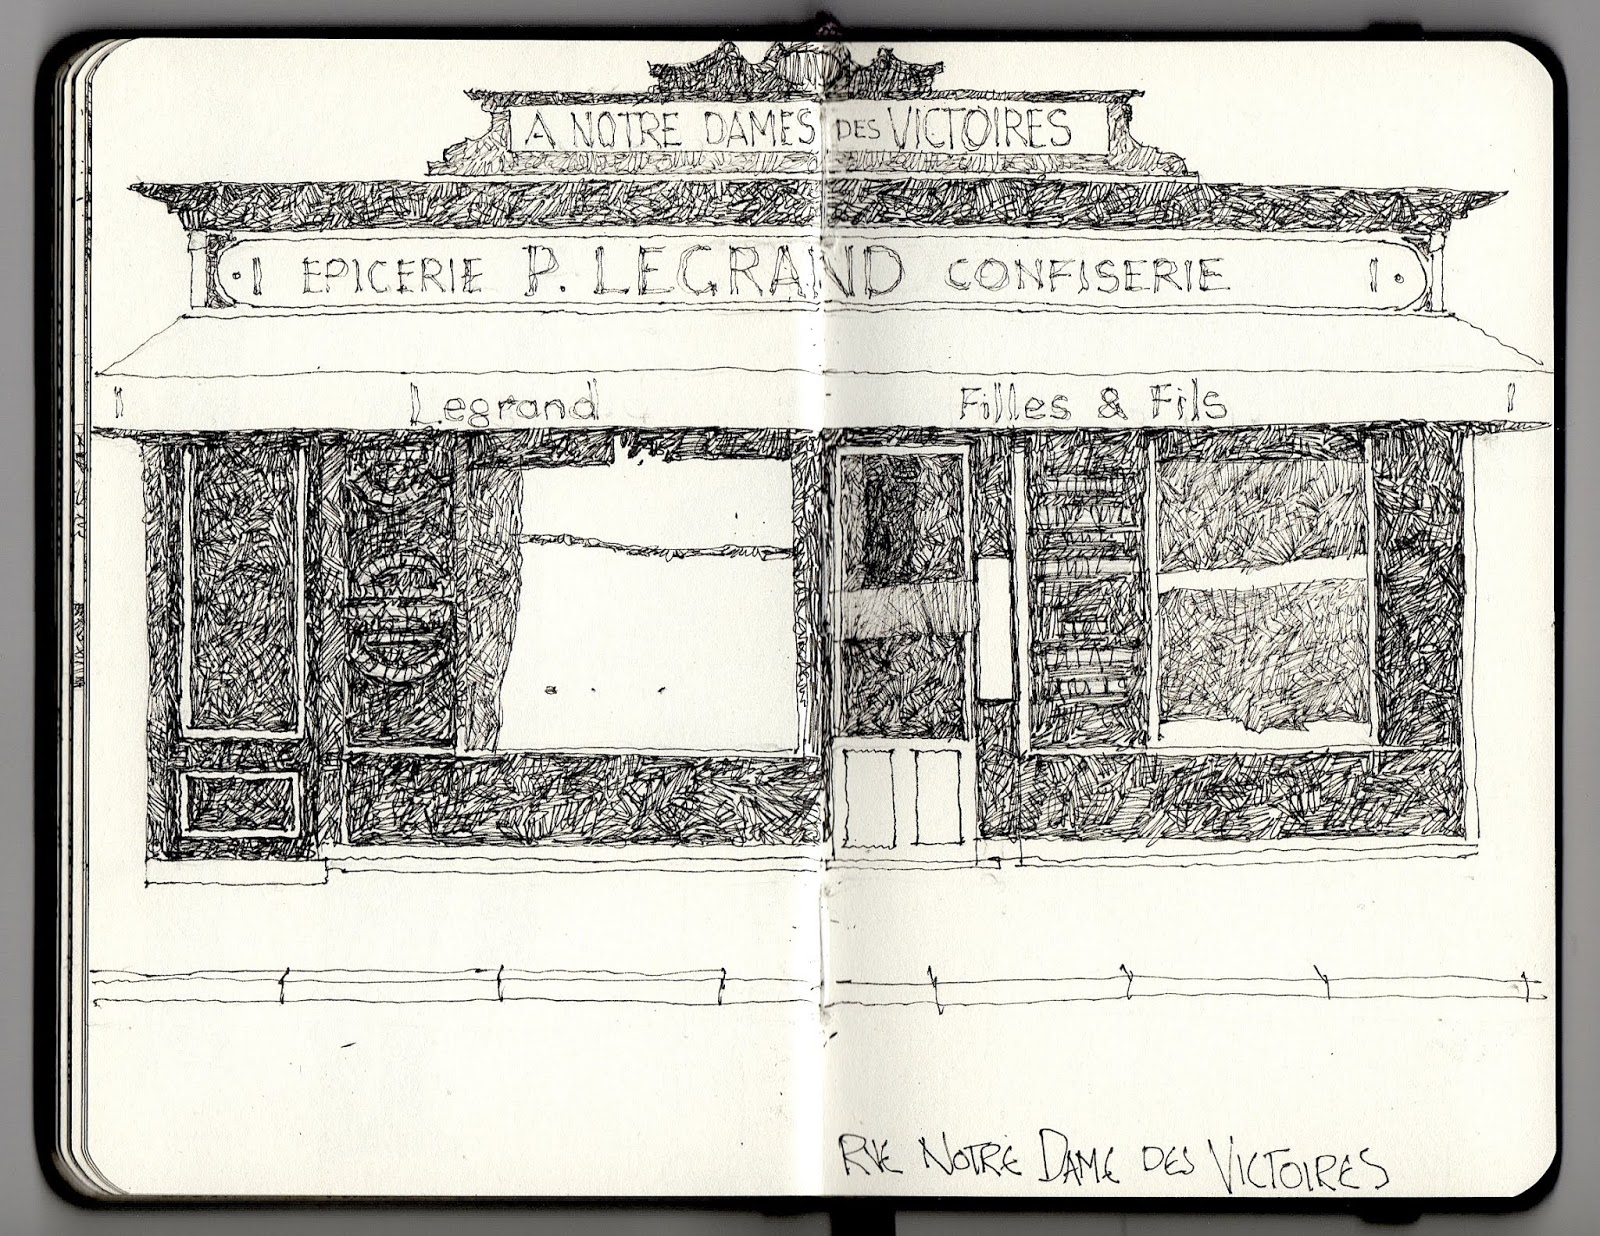 A NOTRE DAMES DES VICTOIRES
EPICERIE P. LEGRAND CONFISERIE
Legrand Filles & Fils
RUE NOTRE DAME DES VICTOIRES